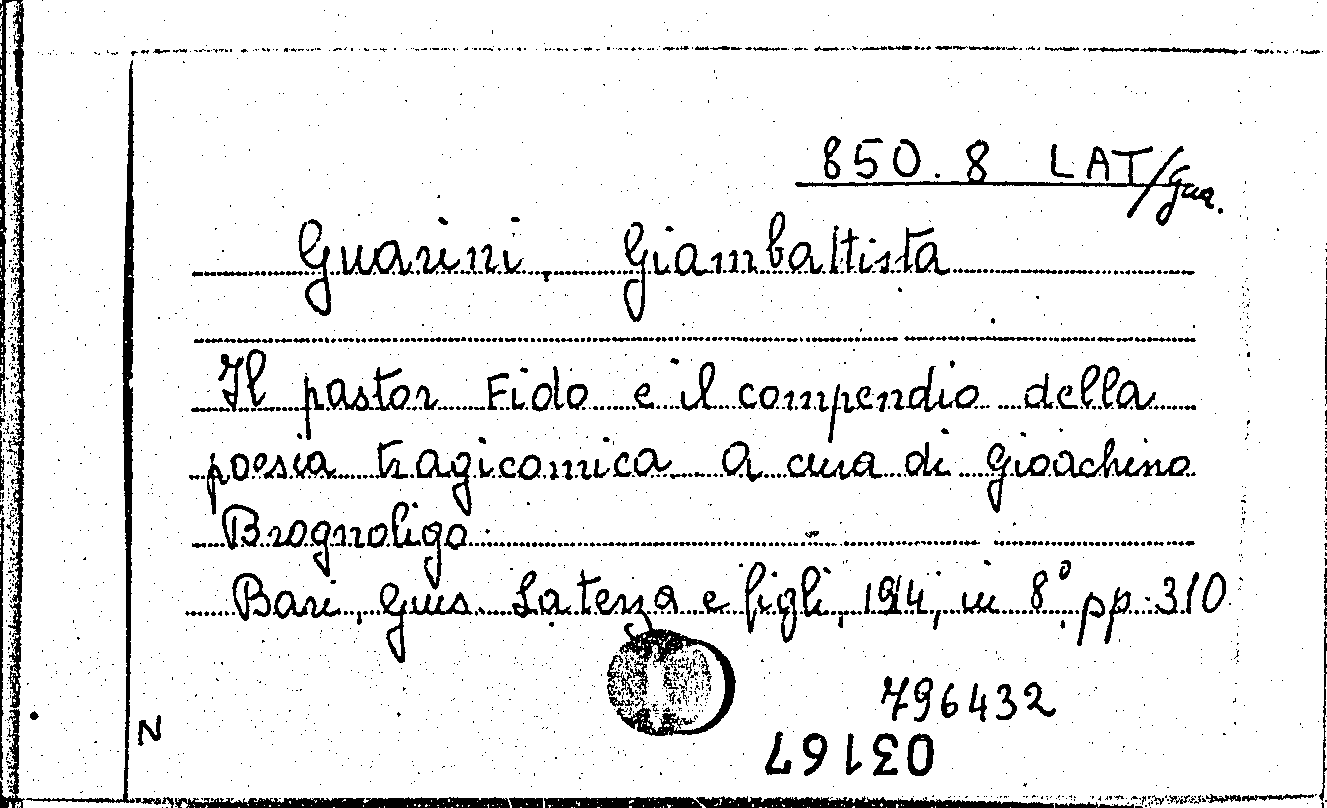 850.8 LAT/Gua.
Guarini, Giambattista
Il pastor Fido e il compendio della
poesia tragicomica a cura di Gioachino
Brognoligo.
Bari, Gius. Laterza e figli, 1914, in 8°, pp. 310
796432
03167
N